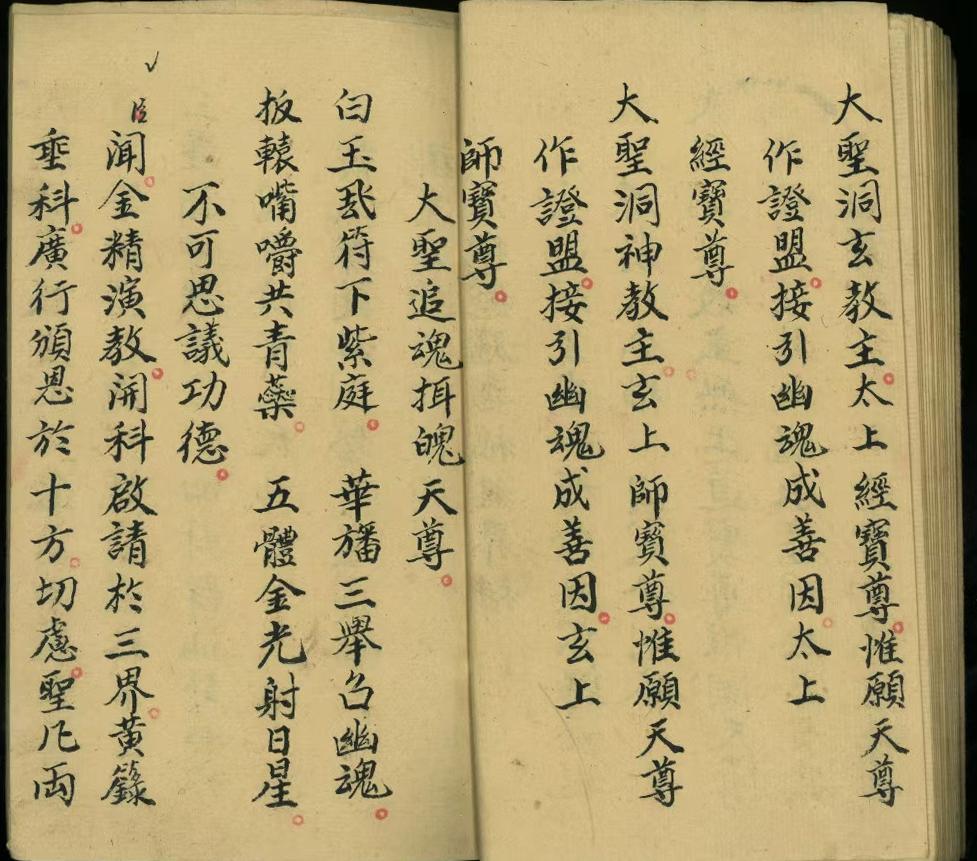 大聖洞玄教主太上經寶尊惟願天尊
作證盟接引幽魂成善因太上
經寶尊
大聖洞神教主玄上師寶尊惟願天尊
作證盟接引幽魂成善因玄上
師寶尊
大聖追魂揖魄天尊
白玉㺯符下紫庭 華旛三舉召幽魂
扳轅嘴嚼共青藥 五體金光射日星
不可思議功德
臣
聞金精演教開科啟請於三界黃籙
垂科廣行頒恩於十方切慮聖凡両